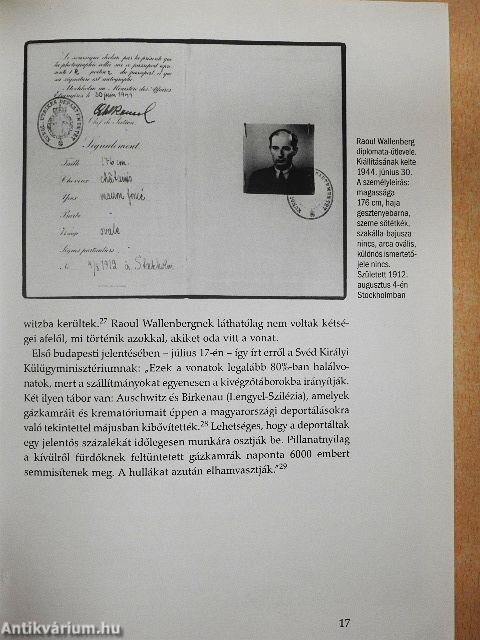 Le soussigné déclare par la présente que
la photographie collée sur ce passeport
porteur du passeport et que
sa signature est autographe
Stockholm au Ministère des Affaires
Etrangères le 30 juin 1944
Chef de Section.
Signalement.
Taille 176 cm.
Cheveux châtains
Yeux marron foncé
Barbe
Visage ovale
Signes particuliers
4/8 1912 à Stockholm
Raoul Wallenberg
diplomata-útlevele.
Kiállításának kelte
1944. június 30.
A személyleírás:
magassága
176 cm, haja
gesztenyebarna,
szeme sötétkék,
szakálla-bajusza
nincs, arca ovális,
különös ismertető-
jele nincs.
Született 1912.
augusztus 4-én
Stockholmban
witzba kerültek.27 Raoul Wallenbergnek láthatólag nem voltak kétsé-
gei afelől, mi történik azokkal, akiket oda vitt a vonat.
Első budapesti jelentésében – július 17-én – így írt erről a Svéd Királyi
Külügyminisztériumnak: „Ezek a vonatok legalább 80%-ban halálvo-
natok, mert a szállítmányokat egyenesen a kivégzőtáborokba irányítják.
Két ilyen tábor van: Auschwitz és Birkenau (Lengyel-Szilézia), amelyek
gázkamráit és krematóriumait éppen a magyarországi deportálásokra
való tekintettel májusban kibővítették.28 Lehetséges, hogy a deportáltak
egy jelentős százalékát időlegesen munkára osztják be. Pillanatnyilag
a kívülről fürdőknek feltüntetett gázkamrák naponta 6000 embert
semmisítenek meg. A hullákat azután elhamvasztják."29
17
Antikvárium.hu